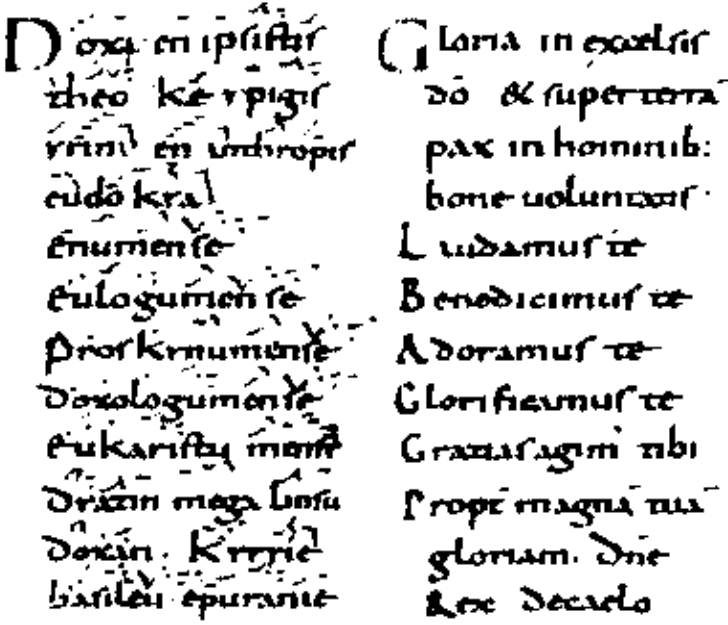 Doxa en ipsistis
theo ke epigis
irini en anthropis
eudokia
enumen se
eulogumen se
Proskinumen se
doxologumen se
eukaristu men se
mega
doxan . Kyrie
basileu epuranie
Gloria in excelsis
dō & super terrā
pax in hominib:
bone uoluntatis .
Laudamus te
Benedicimus te
Adoramus te
Glorificamus te
Gratias agim tibi
Propt magnā tuā
gloriam . Dne
Rex decaelo